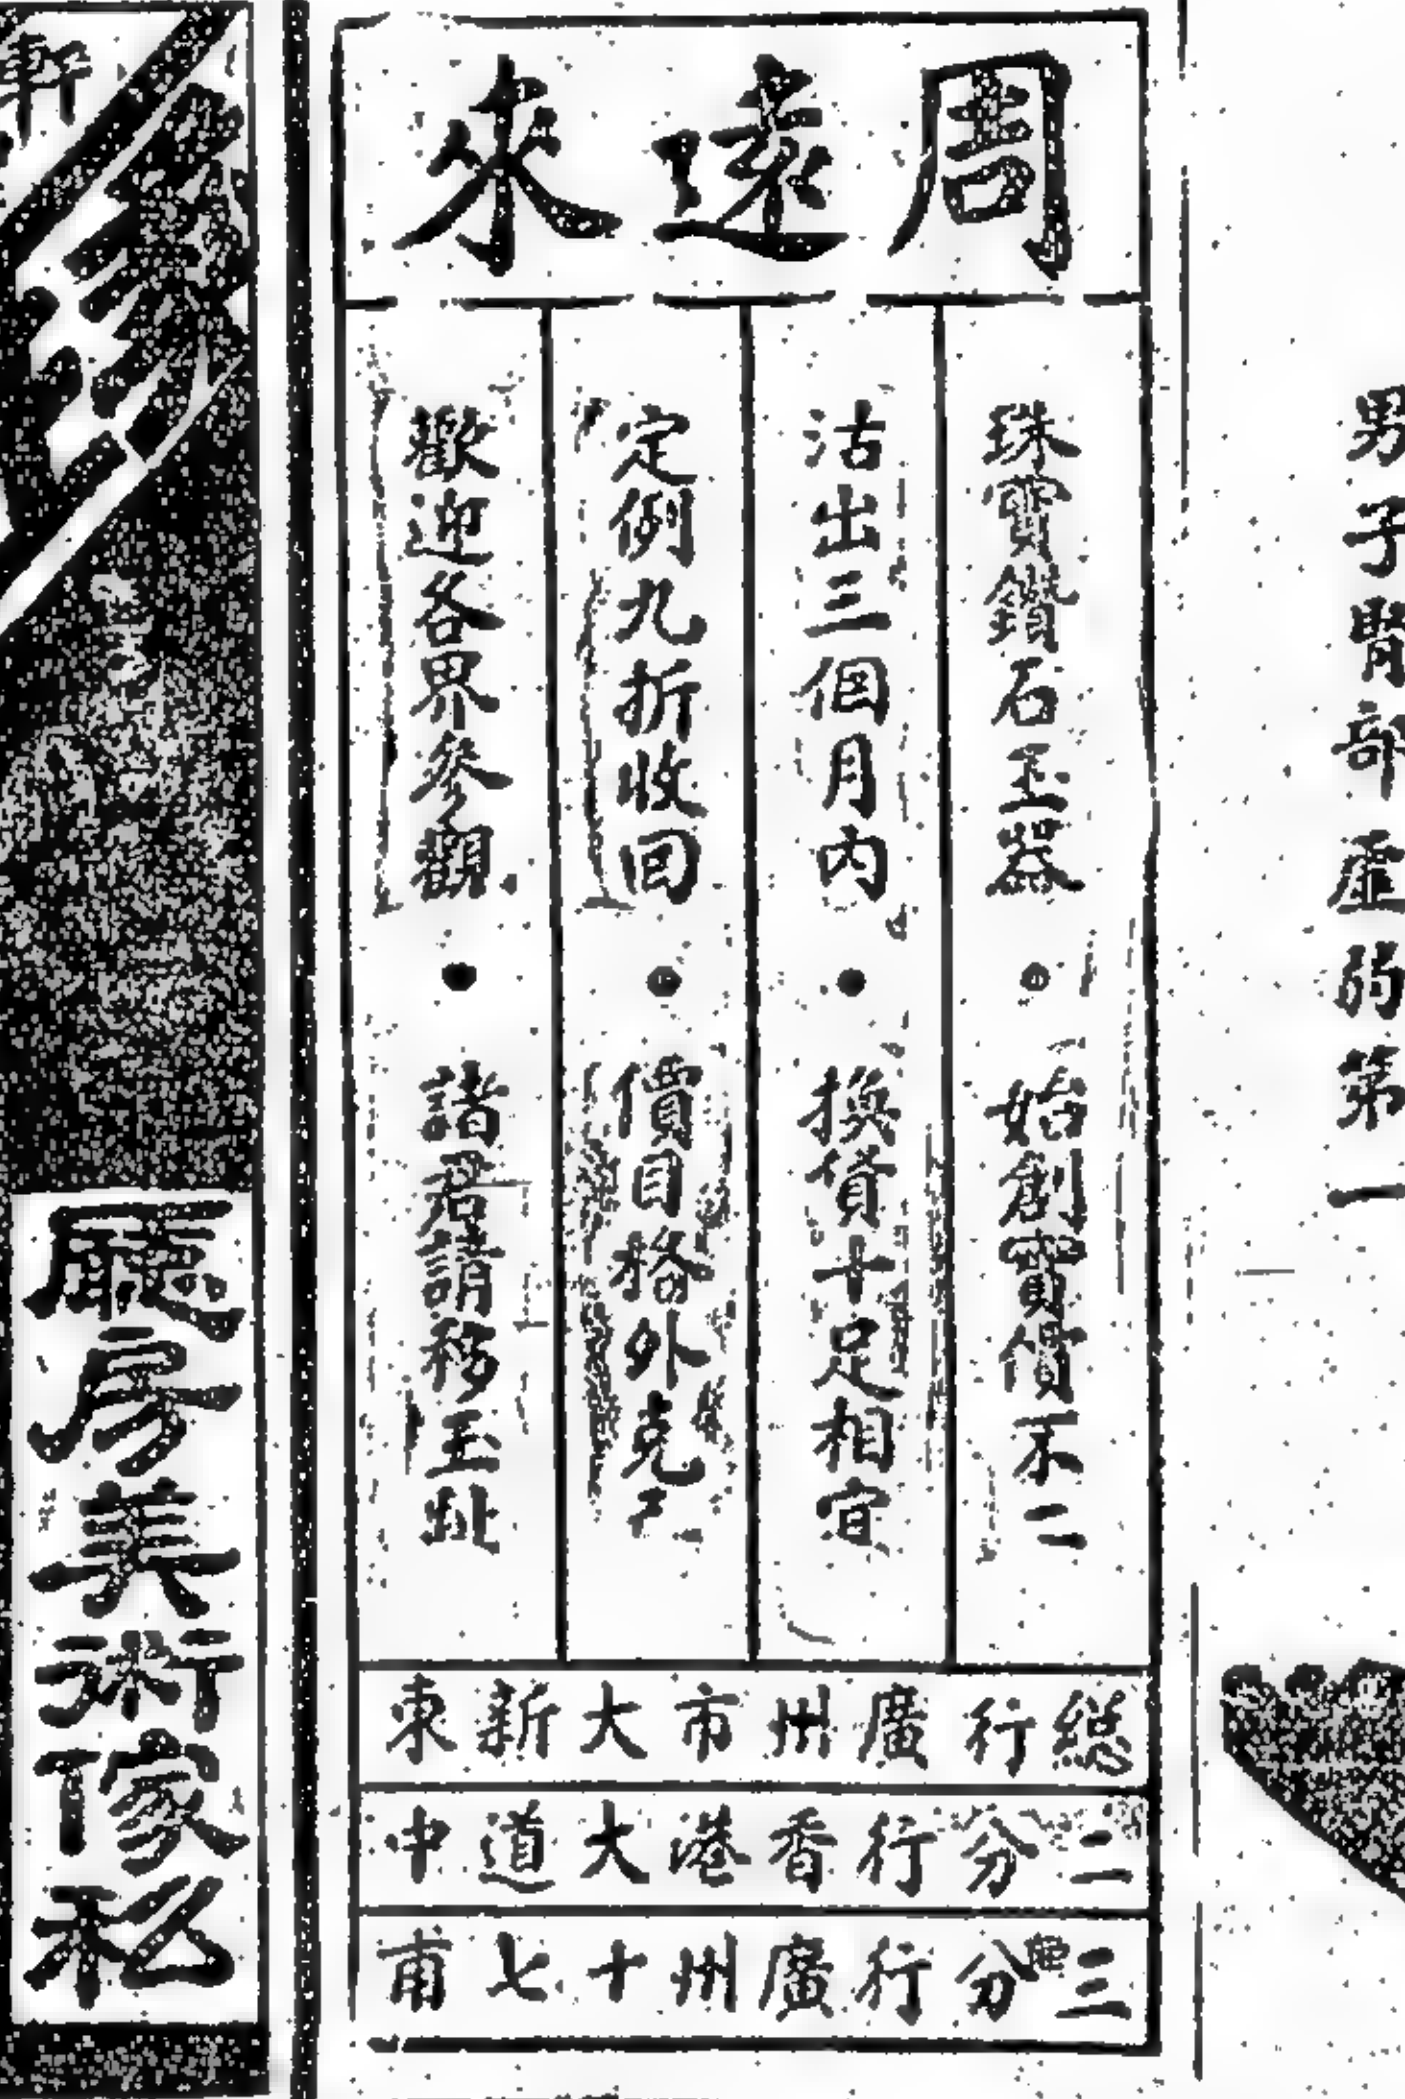 男子腎部虛弱第一
周遠來
珠寶鑽石玉器•始創實價不二
沽出三個月內•換貨十足相宜
定例九折收回•價目格外克己
歡迎各界參觀•諸君請移玉趾
総行廣州市大新東
二分行香港大道中
三分行廣州十七甫
軒
廳房美術傢私